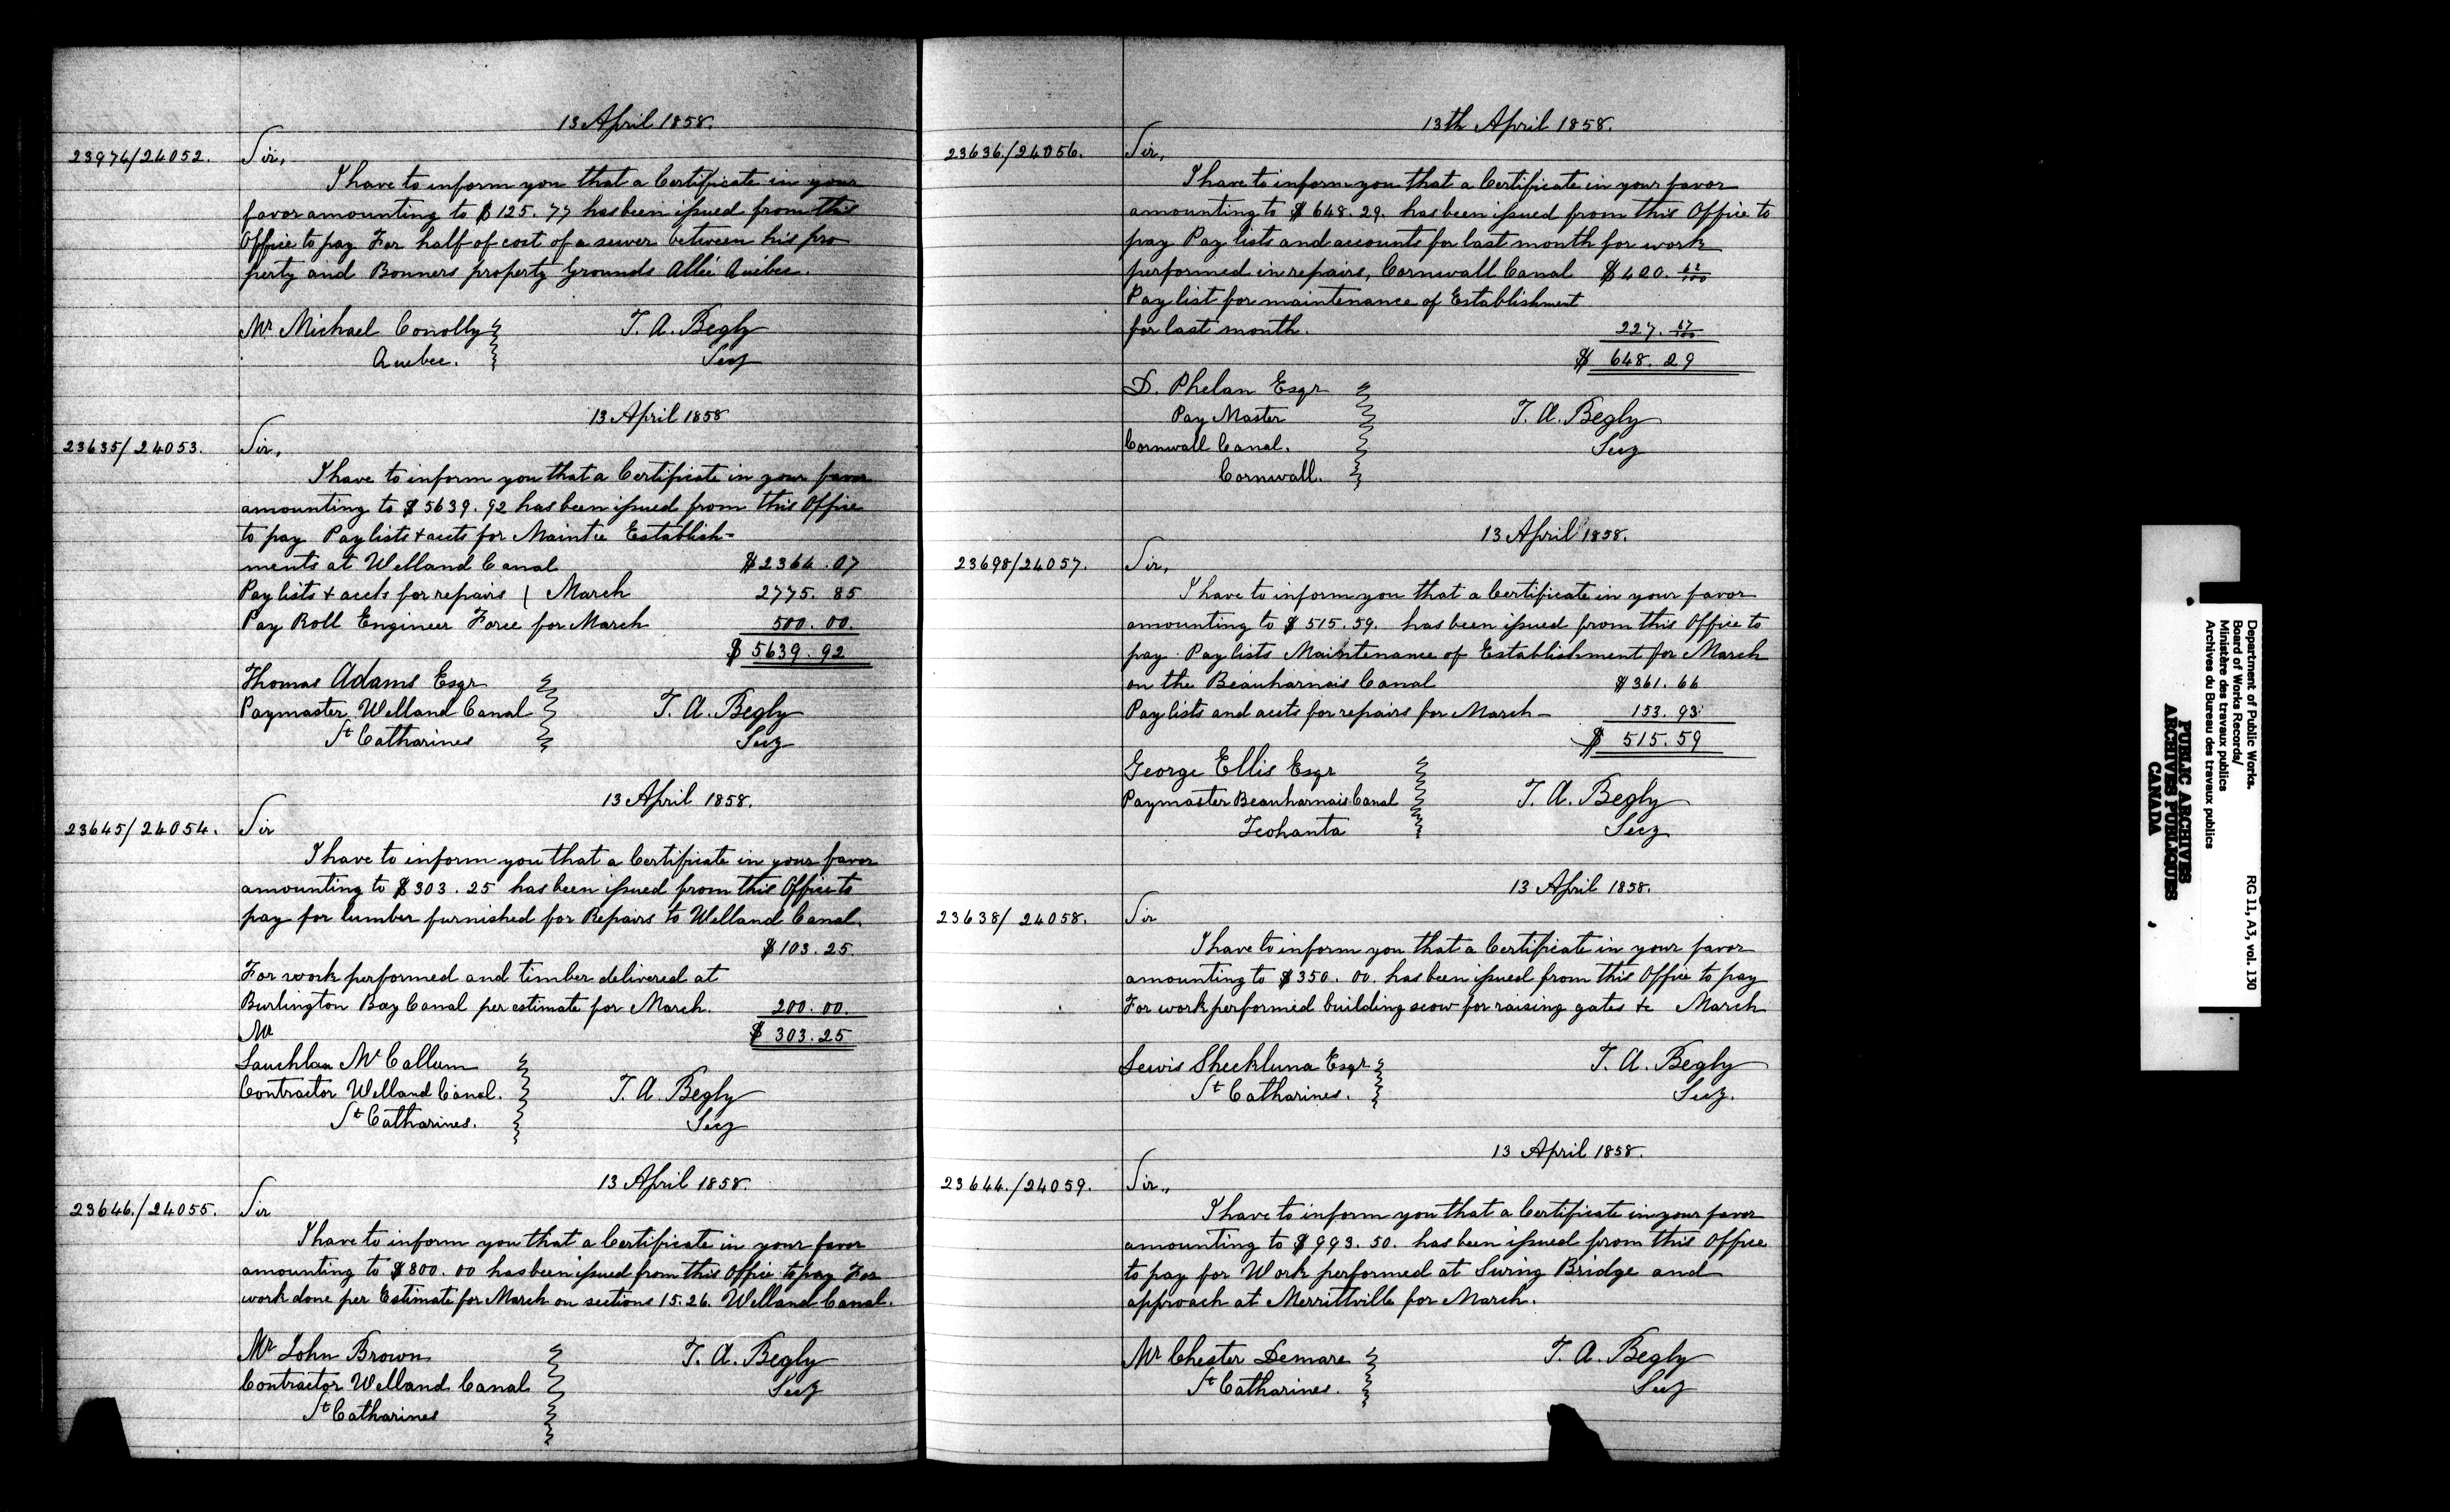 13 April 1858.
23974/24052. Sir,
I have to inform you that a Certificate in your
favor amounting to $125.77 has been issued from this
Office to pay For half of cost of a sewer between his pro
perty and Bonners property Grounds Allié Quebec.
Mr. Michael Conolly
Quebec.
T. A. Begly
Secy
13 April 1858
23635/24053. Sir,
I have to inform you that a Certificate in your favor
amounting to $5639.92 has been issued from this Office
to pay Paylists & accts for Maintce Establish-
ments at Welland Canal $2364.07
Paylists & accts for repairs ( March 2775.85
Pay Roll Engineer Force for March 500.00.
$5639.92
Thomas Adams Esqr
Paymaster Welland Canal
St Catharines
T. A. Begly
Secy
13 April 1858.
23645/24054. Sir
I have to inform you that a Certificate in your favor
amounting to $303.25 has been issued from this Office to
pay for lumber furnished for Repairs to Welland Canal.
$103.25.
For work performed and timber delivered at
Burlington Bay Canal per estimate for March. 200.00.
Mr $303.25
Lauchlan McCallum
Contractor Welland Canal.
St Catharines.
T. A. Begly
Secy
13 April 1858.
23646./24055. Sir
I have to inform you that a Certificate in your favor
amounting to $800.00 has been issued from this Office to pay For
work done per Estimate for March on sections 15.26. Welland Canal.
Mr John Brown
Contractor Welland Canal
St Catharines
T. A. Begly
Secy
13th April 1858.
23636./24056. Sir,
I have to inform you that a Certificate in your favor
amounting to $648.29. has been issued from this Office to
pay Pay lists and accounts for last month for work
performed in repairs, Cornwall Canal $420. 62/100
Pay list for maintenance of Establishment
for last month. 227. 67/100
$648.29
D. Phelan Esqr
Pay Master
Cornwall Canal.
Cornwall.
T. A. Begly
Secy
13 April 1858.
23698/24057. Sir,
I have to inform you that a Certificate in your favor
amounting to $515.59. has been issued from this Office to
pay Pay lists Maintenance of Establishment for March
on the Beauharnais Canal $361.66
Pay lists and accts for repairs for March - 153.93
$515.59
George Ellis Esqr
Paymaster Beauharnais Canal
T. A. Begly
Secy
13 April 1858.
23638/24058. Sir
I have to inform you that a Certificate in your favor
amounting to $350.00. has been issued from this Office to pay
For work performed building scow for raising gates &c March
Lewis Sheckluna Esqr
St Catharines.
T. A. Begly
Secy.
13 April 1858.
23644./24059. Sir.,
I have to inform you that a Certificate in your favor
amounting to $993.50. has been issued from this Office
to pay for Work performed at Swing Bridge and
approach at Merrittville for March.
Mr Chester Demare
St Catharines.
T. A. Begly
Secy
Department of Public Works. RG 11, A3, vol. 130
Board of Works Records/
Ministère des travaux publics
Archives du Bureau des travaux publics
PUBLIC ARCHIVES
ARCHIVES PUBLIQUES
CANADA